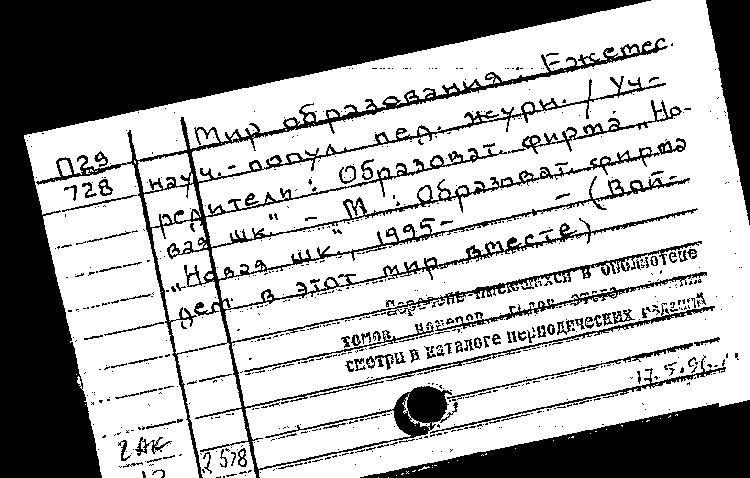 Мир образования. Ежемес.
П29
728
науч.-попул. пед. журн. / Уч-
редители: Образоват. фирма „Но-
вая шк". - М.: Образоват. фирма
„Новая шк", 1995- . - (Вой-
дем в этот мир вместе)
Перечень имеющихся в библиотеке
томов, номеров, годов этого издания
смотри в каталоге периодических изданий
17.5.96.
2 АК
2 578